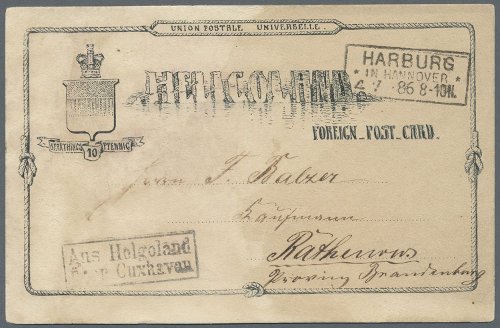 UNION POSTALE UNIVERSELLE.
HARBURG
* IN HANNOVER *
4 7 86 8-10N.
HELGOLAND
FOREIGN.POST.CARD.
FARTHINGS 10 PFENNIG
Herrn F. Balzer
Kaufmann
Rathenow
Provinz Brandenburg
Aus Helgoland
Cuxhaven